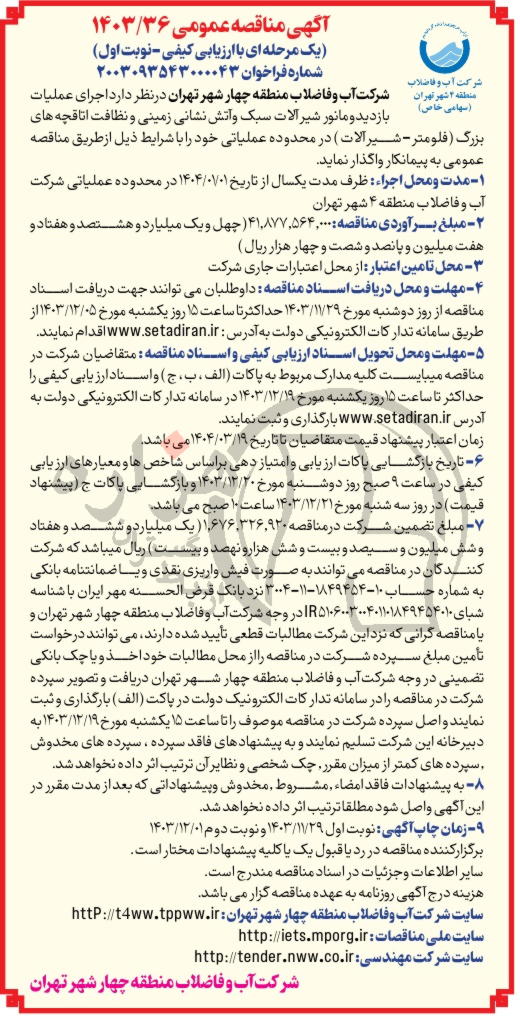 آگهی مناقصه عمومی ۱۴۰۳/۳۶
(یک مرحله ای با ارزیابی کیفی - نوبت اول)
شماره فراخوان ۲۰۰۳۰۹۳۵۴۳۰۰۰۰۴۳
شرکت آب و فاضلاب
منطقه ۴ شهر تهران
(سهامی خاص)
شرکت آب و فاضلاب منطقه چهار شهر تهران در نظر دارد اجرای عملیات
بازدید و مانور شیرآلات سبک و آتش نشانی زمینی و نظافت اتاقچه های
بزرگ (فلومتر - شیرآلات) در محدوده عملیاتی خود را با شرایط ذیل از طریق مناقصه
عمومی به پیمانکار واگذار نماید.
۱- مدت و محل اجراء: ظرف مدت یکسال از تاریخ ۱۴۰۴/۰۱/۰۱ در محدوده عملیاتی شرکت
آب و فاضلاب منطقه ۴ شهر تهران
۲- مبلغ برآوردی مناقصه: ۴۱,۸۷۷,۵۶۴,۰۰۰ (چهل و یک میلیارد و هشتصد و هفتاد و
هفت میلیون و پانصد و شصت و چهار هزار ریال)
۳- محل تامین اعتبار: از محل اعتبارات جاری شرکت
۴- مهلت و محل دریافت اسناد مناقصه: داوطلبان می توانند جهت دریافت اسناد
مناقصه از روز دوشنبه مورخ ۱۴۰۳/۱۱/۲۹ حداکثر تا ساعت ۱۵ روز یکشنبه مورخ ۱۴۰۳/۱۲/۰۵ از
طریق سامانه تدارکات الکترونیکی دولت به آدرس: www.setadiran.ir اقدام نمایند.
۵- مهلت و محل تحویل اسناد ارزیابی کیفی و اسناد مناقصه: متقاضیان شرکت در
مناقصه میبایست کلیه مدارک مربوط به پاکات (الف، ب، ج) و اسناد ارزیابی کیفی را
حداکثر تا ساعت ۱۵ روز یکشنبه مورخ ۱۴۰۳/۱۲/۱۹ در سامانه تدارکات الکترونیکی دولت به
آدرس www.setadiran.ir بارگذاری و ثبت نمایند.
زمان اعتبار پیشنهاد قیمت متقاضیان تا تاریخ ۱۴۰۴/۰۳/۱۹ می باشد.
۶- تاریخ بازگشایی پاکات ارزیابی و امتیازدهی براساس شاخص ها و معیارهای ارزیابی
کیفی در ساعت ۹ صبح روز دوشنبه مورخ ۱۴۰۳/۱۲/۲۰ و بازگشایی پاکات ج (پیشنهاد
قیمت) در روز سه شنبه مورخ ۱۴۰۳/۱۲/۲۱ ساعت ۱۰ صبح می باشد.
۷- مبلغ تضمین شرکت در مناقصه ۱,۶۷۶,۳۲۶,۹۲۰ (یک میلیارد و ششصد و هفتاد
و شش میلیون و سیصد و بیست و شش هزار و نهصد و بیست) ریال میباشد که شرکت
کنندگان در مناقصه می توانند به صورت فیش واریزی نقدی و یا ضمانتنامه بانکی
به شماره حساب ۱۰-۱۸۴۹۴۵۴-۱۱-۳۰۰۴ نزد بانک قرض الحسنه مهر ایران با شناسه
شبای IR۵۱۰۶۰۰۳۰۰۴۰۱۱۰۱۸۴۹۴۵۴۰۱۰ در وجه شرکت آب و فاضلاب منطقه چهار شهر تهران و
یا مناقصه گرانی که نزد این شرکت مطالبات قطعی تأیید شده دارند، می توانند درخواست
تأمین مبلغ سپرده شرکت در مناقصه را از محل مطالبات خود اخذ و یا چک بانکی
تضمینی در وجه شرکت آب و فاضلاب منطقه چهار شهر تهران دریافت و تصویر سپرده
شرکت در مناقصه را در سامانه تدارکات الکترونیک دولت در پاکت (الف) بارگذاری و ثبت
نمایند و اصل سپرده شرکت در مناقصه موصوف را تا ساعت ۱۵ یکشنبه مورخ ۱۴۰۳/۱۲/۱۹ به
دبیرخانه این شرکت تسلیم نمایند و به پیشنهادهای فاقد سپرده، سپرده های مخدوش
,سپرده های کمتر از میزان مقرر, چک شخصی و نظایر آن ترتیب اثر داده نخواهد شد.
۸- به پیشنهادات فاقد امضاء, مشروط, مخدوش و پیشنهاداتی که بعد از مدت مقرر در
این آگهی واصل شود مطلقا ترتیب اثر داده نخواهد شد.
۹- زمان چاپ آگهی: نوبت اول ۱۴۰۳/۱۱/۲۹ و نوبت دوم ۱۴۰۳/۱۲/۰۱
برگزارکننده مناقصه در رد یا قبول یک یا کلیه پیشنهادات مختار است.
سایر اطلاعات و جزئیات در اسناد مناقصه مندرج است.
هزینه درج آگهی روزنامه به عهده مناقصه گزار می باشد.
سایت شرکت آب و فاضلاب منطقه چهار شهر تهران: httP://t4ww.tppww.ir
سایت ملی مناقصات: http://iets.mporg.ir
سایت شرکت مهندسی: http://tender.nww.co.ir
شرکت آب و فاضلاب منطقه چهار شهر تهران